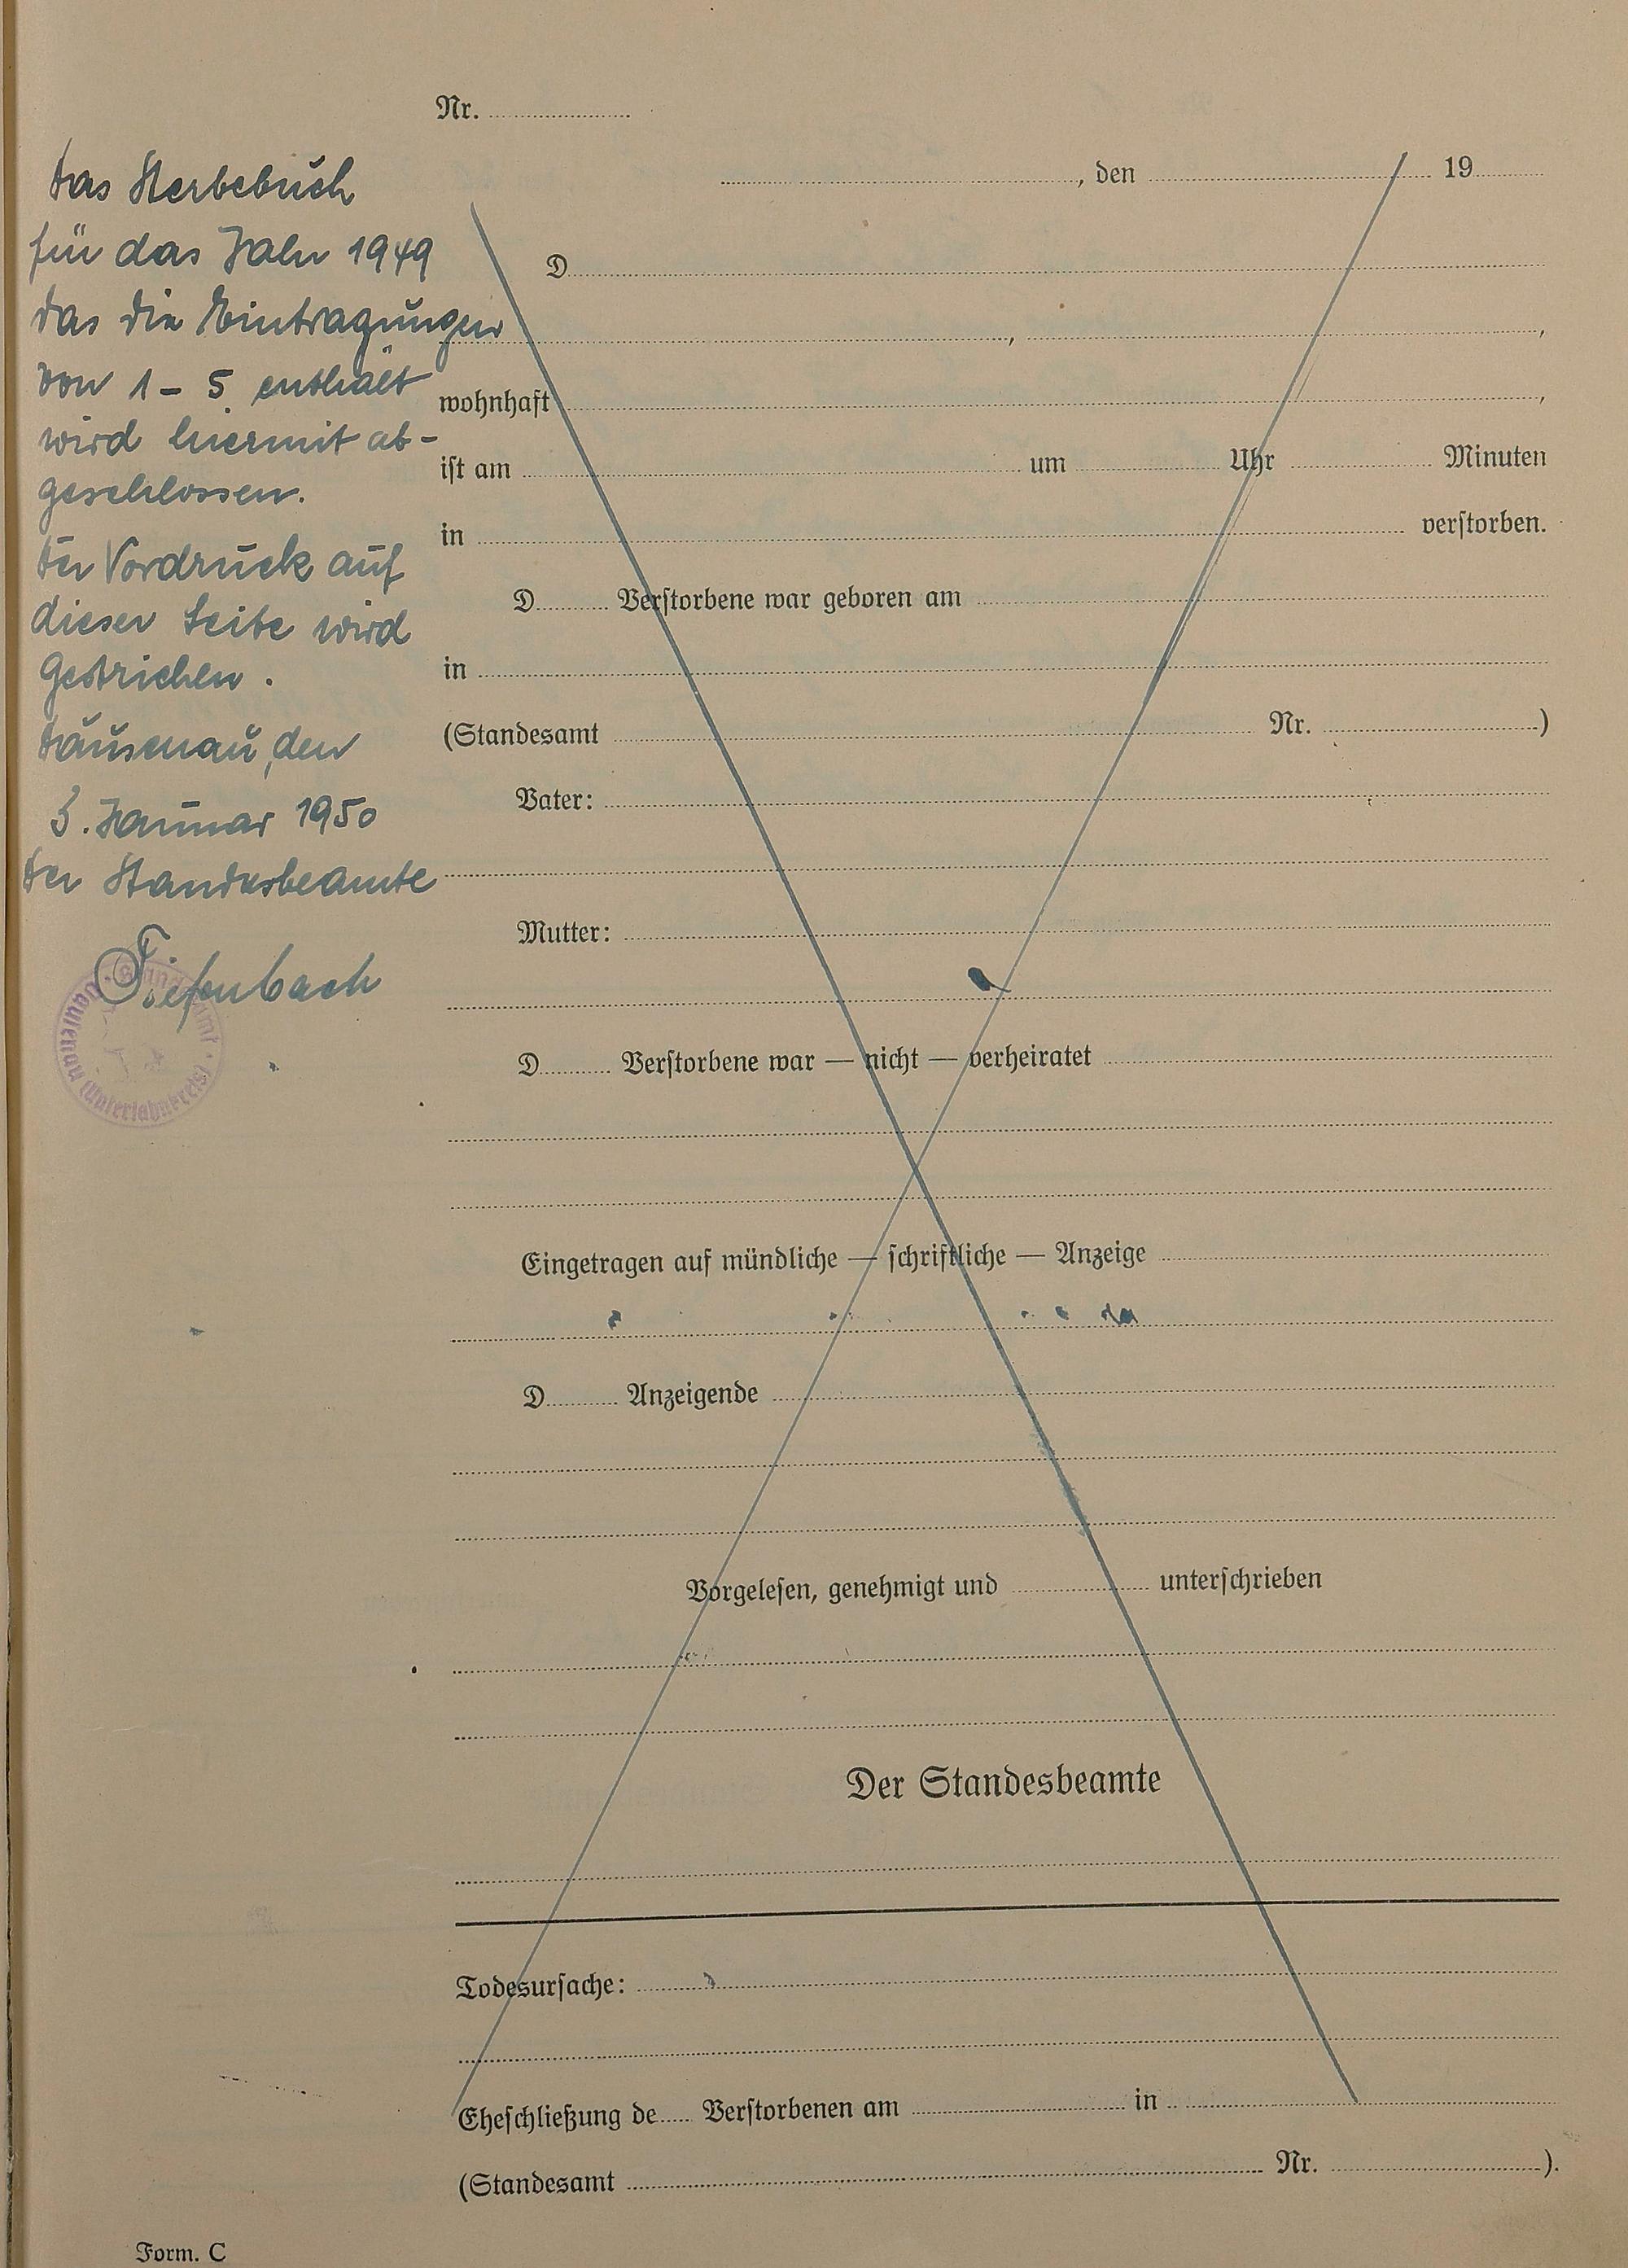 Das Sterbebuch
für das Jahr 1949
das die Eintragungen
von 1 – 5 enthält
wird hiermit ab-
geschlossen.
Der Vordruck auf
dieser Seite wird
gestrichen.
Dausenau, den
3. Januar 1950
Der Standesbeamte
Tiefenbach
Standesamt
Dausenau (Unterlahnkreis)
Nr.
, den 19
D
, ,
wohnhaft ,
ist am um Uhr Minuten
in verstorben.
D Verstorbene war geboren am
in
(Standesamt Nr. )
Vater:
Mutter:
D Verstorbene war — nicht — verheiratet
Eingetragen auf mündliche — schriftliche — Anzeige
D Anzeigende
Vorgelesen, genehmigt und unterschrieben
Der Standesbeamte
Todesursache:
Eheschließung de Verstorbenen am in
(Standesamt Nr. ).
Form. C